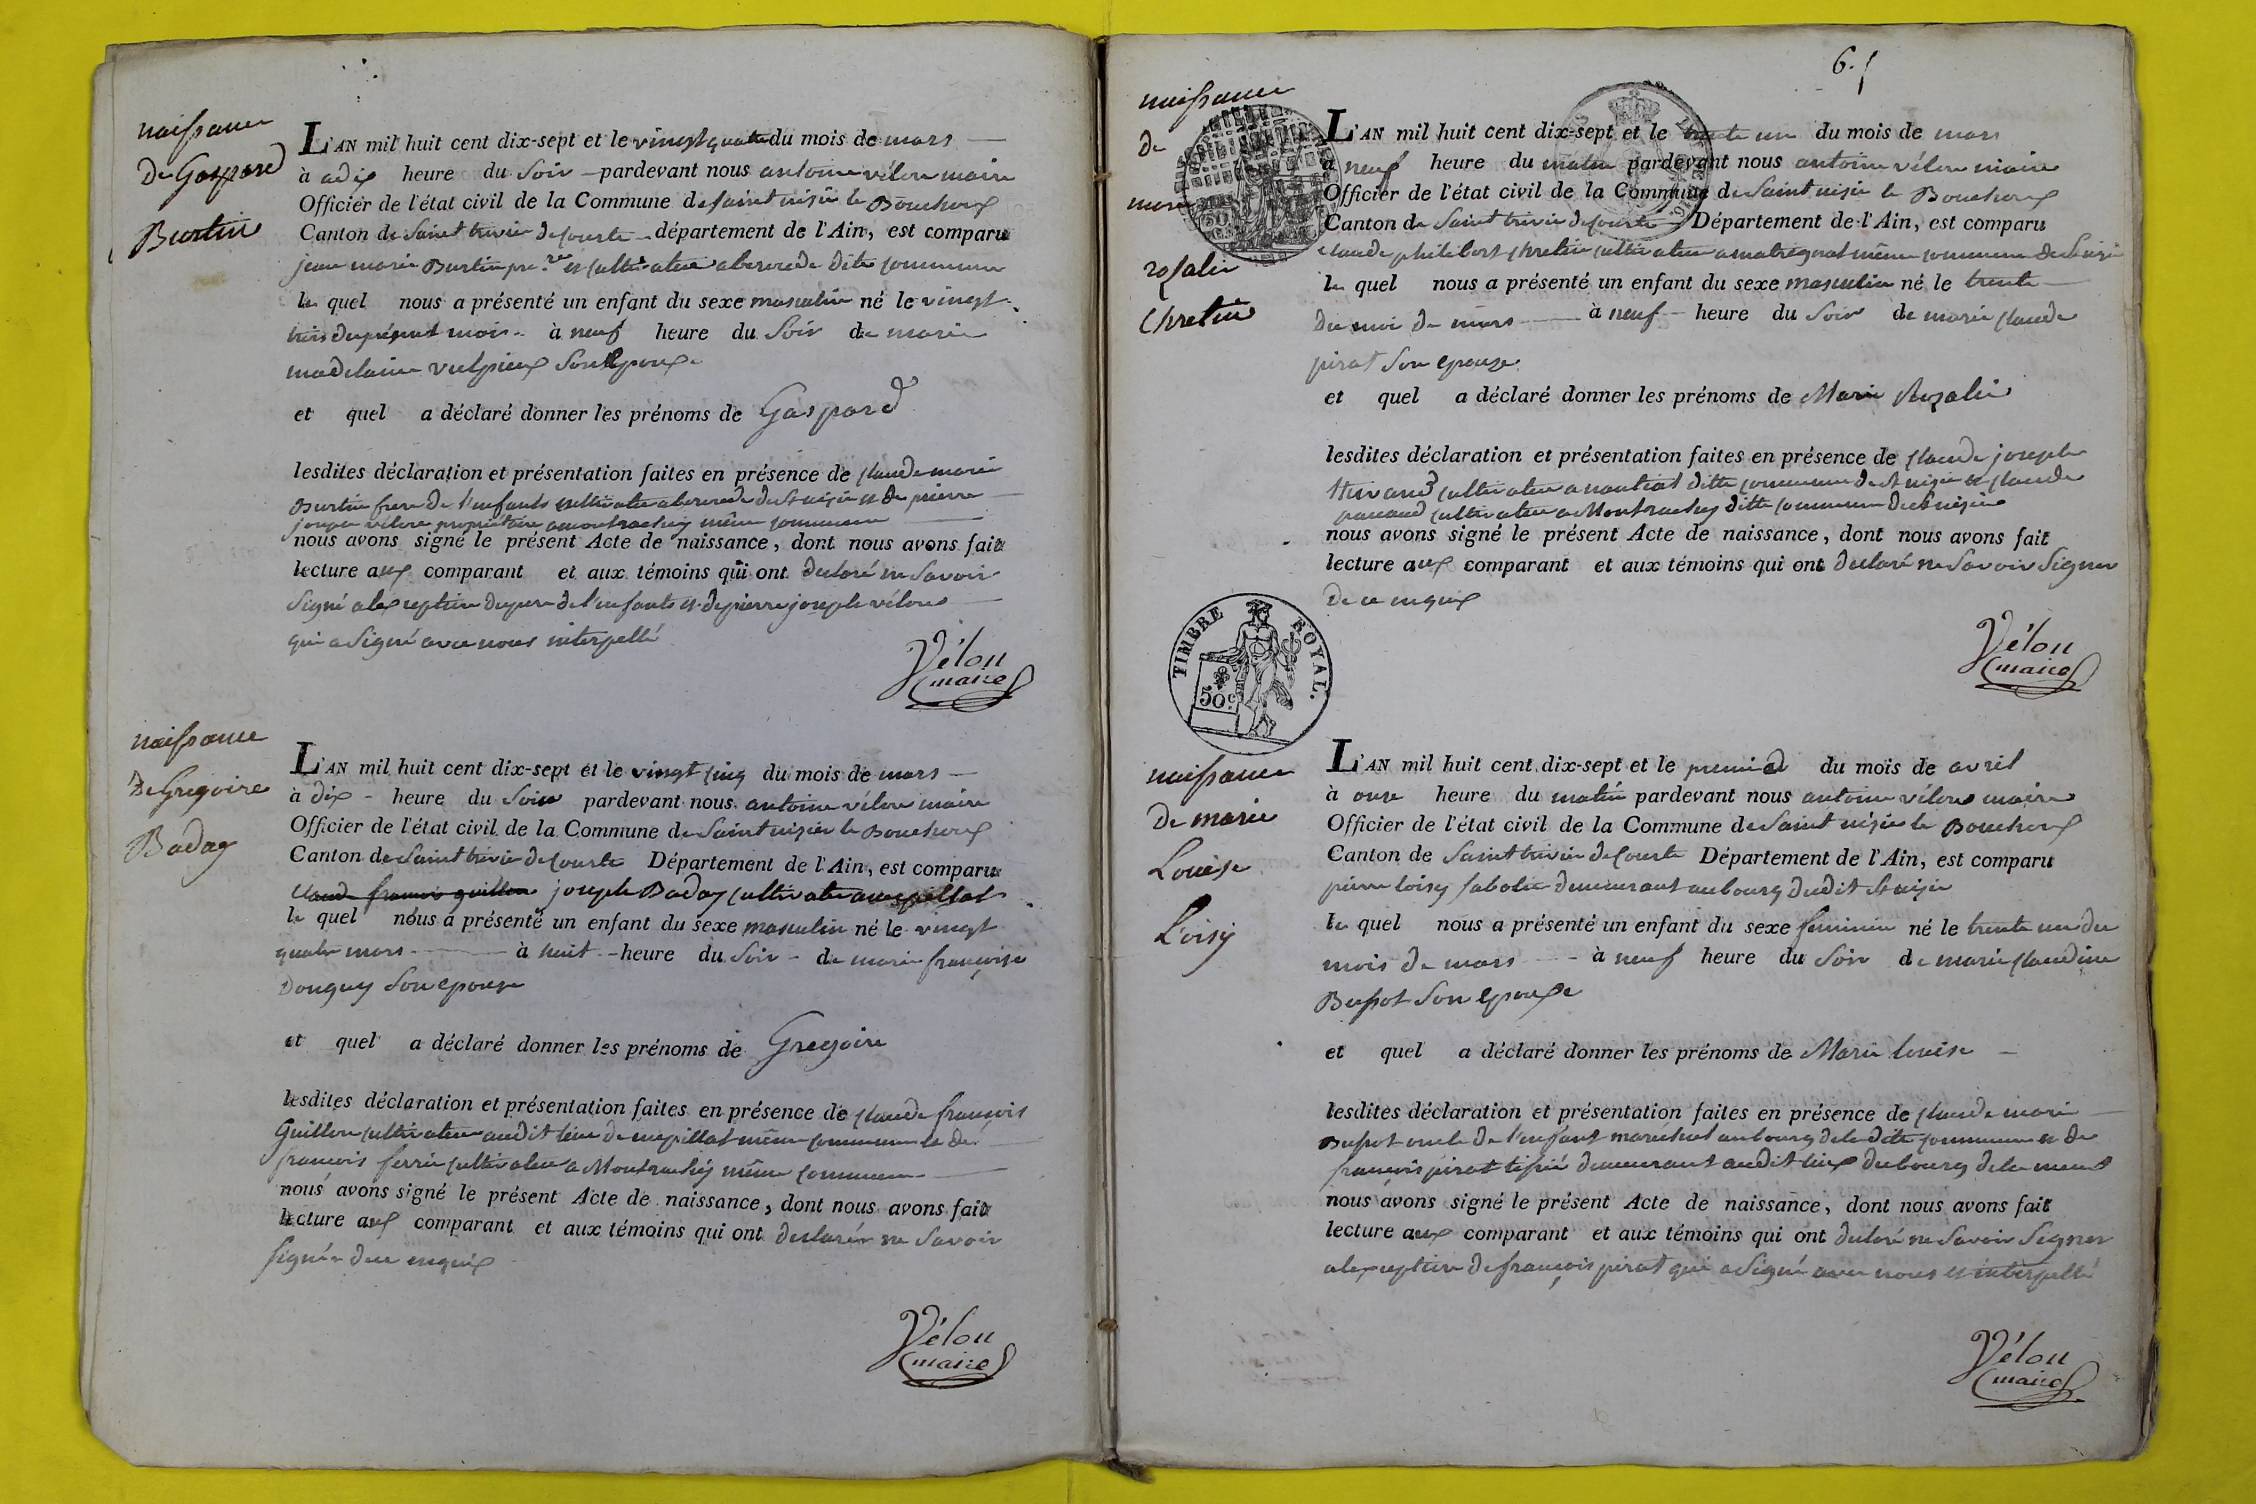 naissance
De Gaspard
Burtin
L'AN mil huit cent dix-sept et le vingt quatre du mois de mars
à a dix heure du Soir pardevant nous antoine vélon maire
Officier de l'état civil de la Commune de saint nizié le Bouchoux
Canton de Saint trivié de Courte département de l'Ain, est comparu
jean marie Burtin cultivateur dite commune
le quel nous a présenté un enfant du sexe masculin né le vingt
trois du présent mois à neuf heure du Soir de marie
madelaine vulpieux Son Epouse
et quel a déclaré donner les prénoms de Gaspard
lesdites déclaration et présentation faites en présence de claude marie
Burtin frere de l'enfants cultivateur de St nizié et de pierre
joseph vélon propriétaire a montrachy même commune
nous avons signé le présent Acte de naissance, dont nous avons fait
lecture aux comparant et aux témoins qui ont declaré ne Savoir
Signé a l'exception du pere de l'enfants et de pierre joseph vélon
qui a Signé avec nous interpellé
Vélon
maire
naissance
De Gregoire
Baday
L'AN mil huit cent dix-sept et le vingt cinq du mois de mars
à dix heure du Soir pardevant nous antoine vélon maire
Officier de l'état civil de la Commune de Saint nizier le Bouchoux
Canton de Saint trivié de Courte Département de l'Ain, est comparu
claude francois guillon joseph Baday cultivateur
le quel nous a présenté un enfant du sexe masculin né le vingt
quatre mars à huit heure du Soir de marie françoise
Donguy Son epouse
et quel a déclaré donner les prénoms de Gregoire
lesdites déclaration et présentation faites en présence de claude françois
Guillon cultivateur audit lieu de mepillat même commune et de
francois ferrié cultivateur a Montrachy même commune
nous avons signé le présent Acte de naissance, dont nous avons fait
lecture aux comparant et aux témoins qui ont declaré ne Savoir
signér de ce enquix
Vélon
maire
6.
naissance
De
marie
rozalie
Chretin
L'AN mil huit cent dix-sept et le trente un du mois de mars
à neuf heure du matin pardevant nous antoine vélon maire
Officier de l'état civil de la Commune de Saint nizié le Bouchoux
Canton de Saint trivié de Courte Département de l'Ain, est comparu
claude philibert chretin cultivateur a même commune de St nizié
le quel nous a présenté un enfant du sexe masculin né le trente
du moi de mars à neuf heure du Soir de marie claude
pirat Son epouse
et quel a déclaré donner les prénoms de Marie Rozalie
lesdites déclaration et présentation faites en présence de claude joseph
cultivateur a ditte commune de St nizié et claude
cultivateur a Montrachy ditte commune de St nizié
nous avons signé le présent Acte de naissance, dont nous avons fait
lecture aux comparant et aux témoins qui ont declaré ne Savoir Signer
De ce enquix
Vélon
maire
TIMBRE ROYAL.
50 c
naissance
De marie
Louise
Loisy
L'AN mil huit cent dix-sept et le premier du mois de avril
à onze heure du matin pardevant nous antoine vélon maire
Officier de l'état civil de la Commune de Saint nizié le Bouchoux
Canton de Saint trivié de Courte Département de l'Ain, est comparu
pierre loisy sabotié demeurant au bourg dudit St nizié
le quel nous a présenté un enfant du sexe feminin né le trente un du
mois de mars à neuf heure du Soir de marie claudine
Bussot Son Epouse
et quel a déclaré donner les prénoms de Marie louise
lesdites déclaration et présentation faites en présence de claude marie
Bussot oncle de l'enfant maréchal au bourg de la dite commune et de
françois pirat demeurant audit lieux du bourg
nous avons signé le présent Acte de naissance, dont nous avons fait
lecture aux comparant et aux témoins qui ont declaré ne Savoir Signer
a l'exception de françois pirat qui a Signé avec nous et interpellé
Vélon
maire